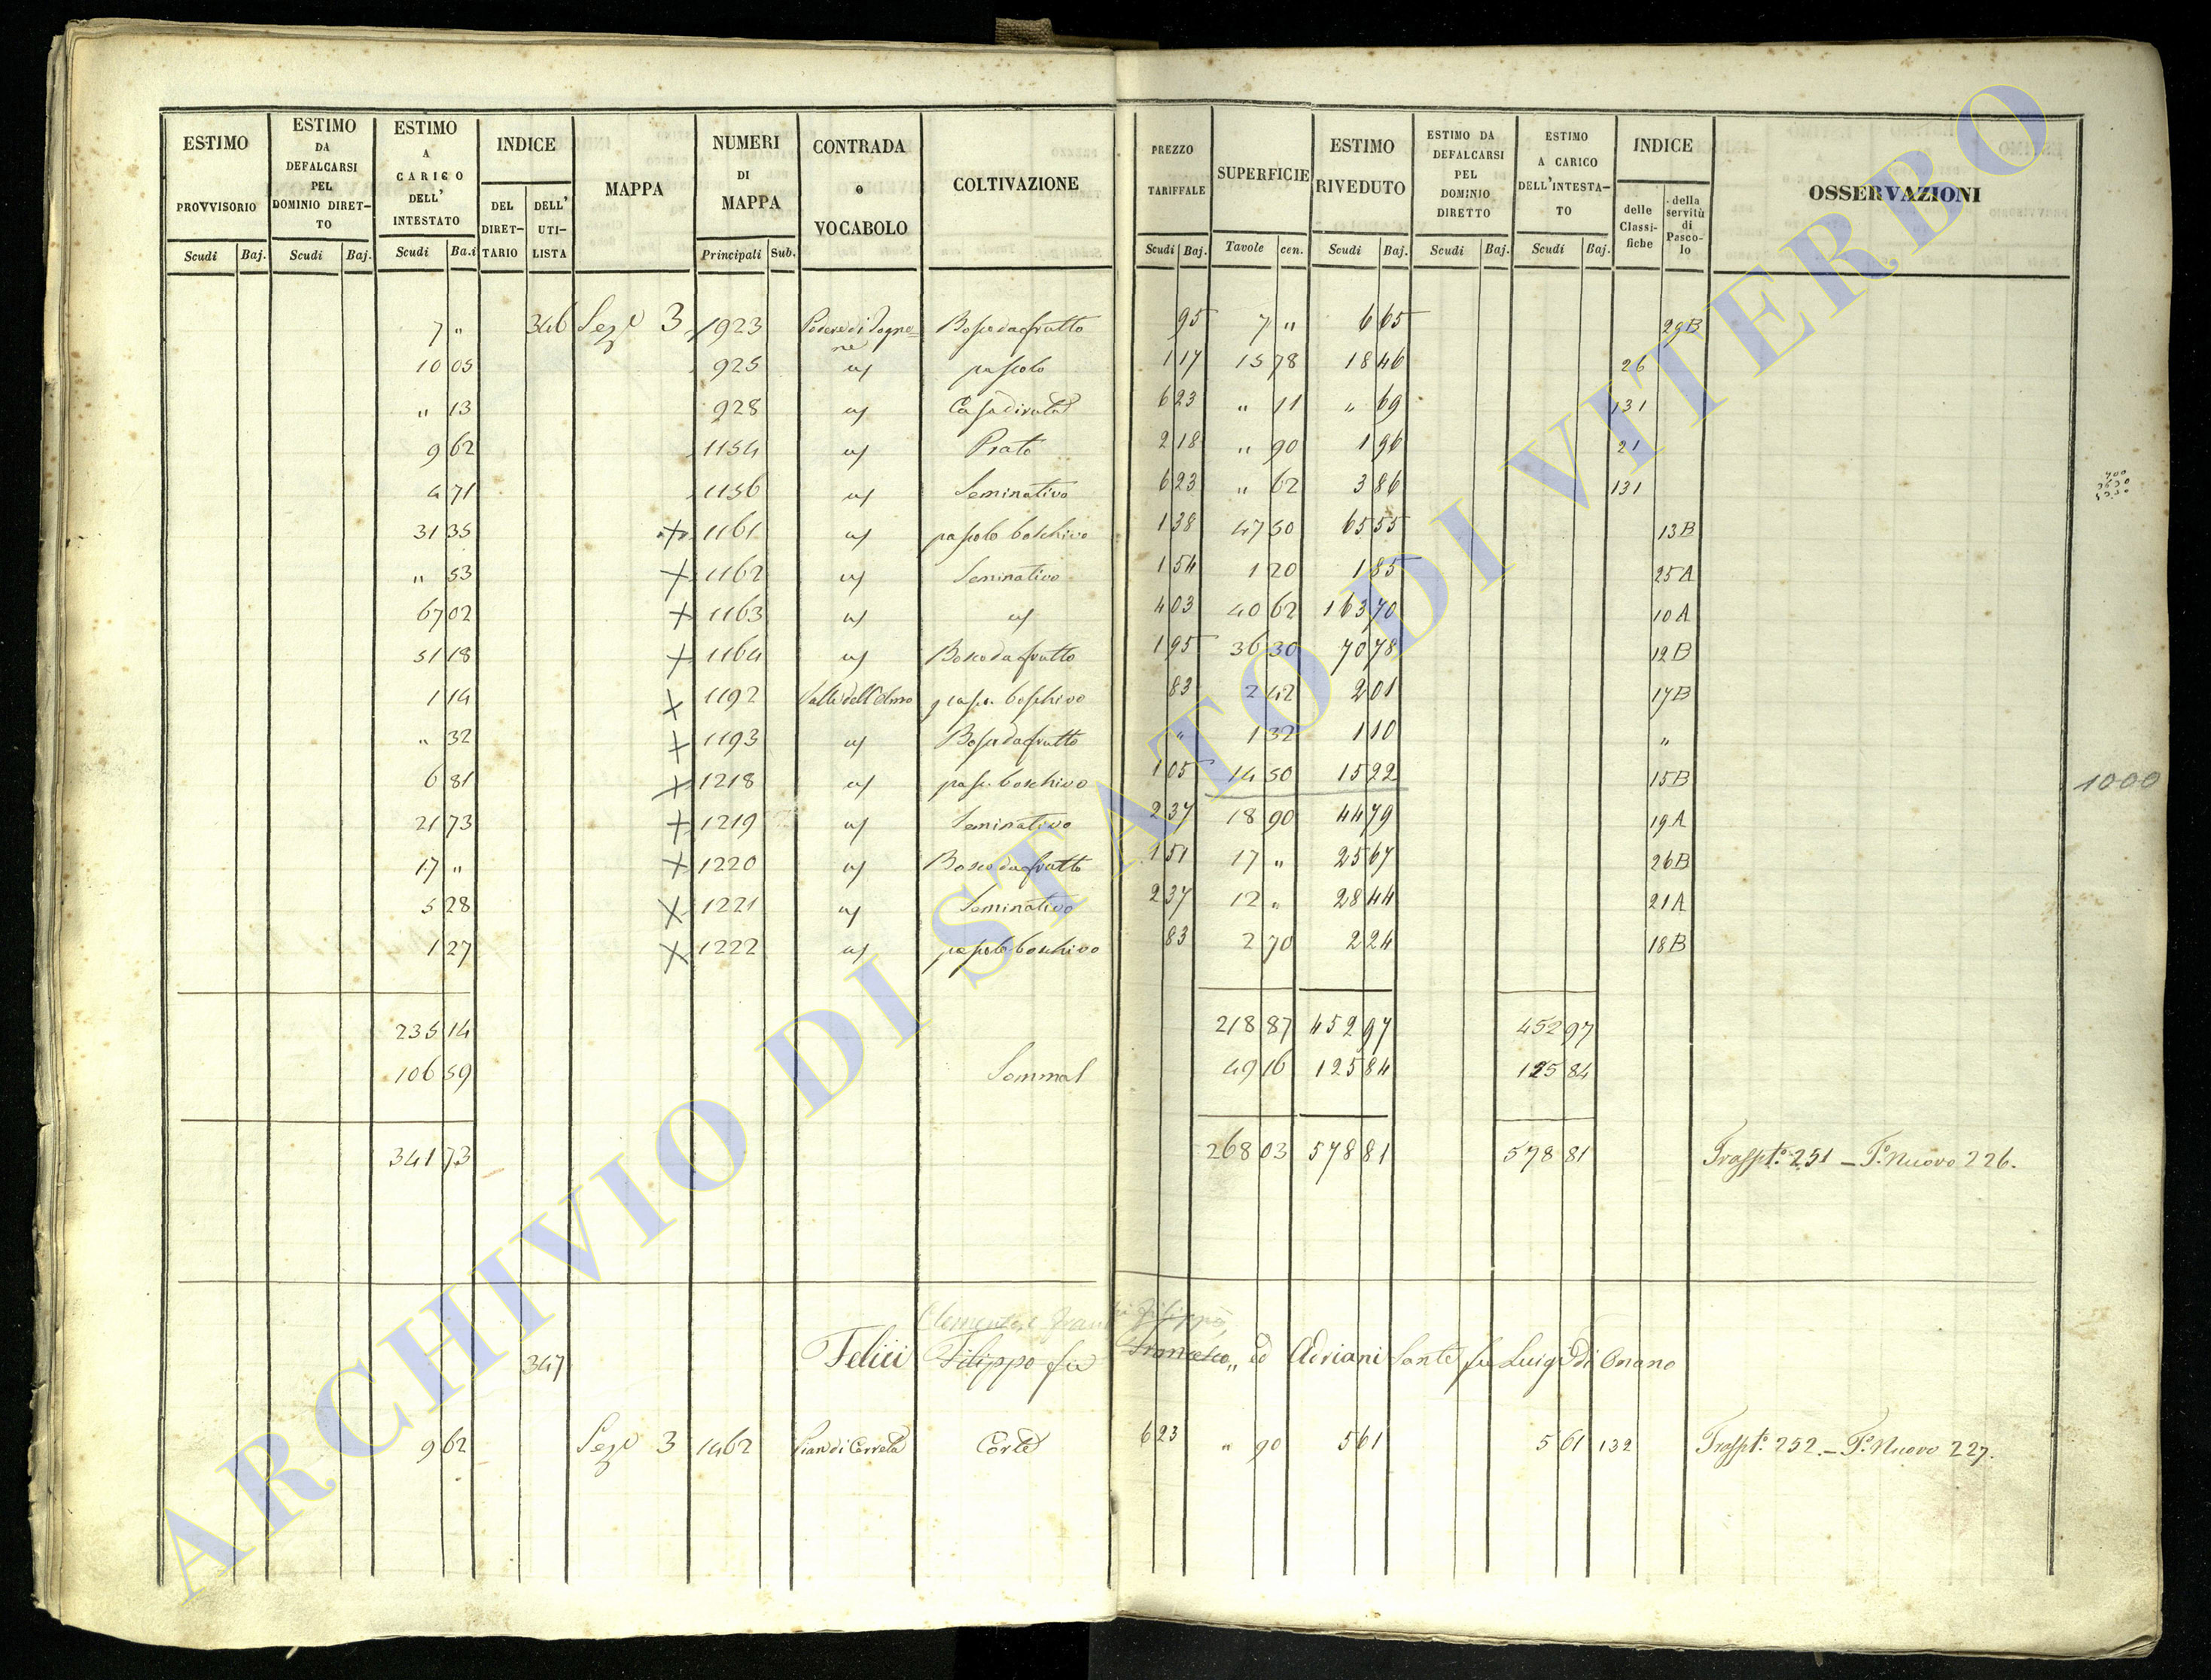 ESTIMO PROVVISORIO Scudi Baj. | ESTIMO DA DEFALCARSI PEL DOMINIO DIRET-TO Scudi Baj. | ESTIMO A CARICO DELL' INTESTATO Scudi Ba.i | INDICE DEL DIRET-TARIO DELL' UTI-LISTA | MAPPA | NUMERI DI MAPPA Principali Sub. | CONTRADA o VOCABOLO | COLTIVAZIONE | PREZZO TARIFFALE Scudi Baj. | SUPERFICIE Tavole cen. | ESTIMO RIVEDUTO Scudi Baj. | ESTIMO DA DEFALCARSI PEL DOMINIO DIRETTO Scudi Baj. | ESTIMO A CARICO DELL'INTESTA-TO Scudi Baj. | INDICE delle Classi-fiche della servitù di Pasco-lo | OSSERVAZIONI
7 " 346 Sez.e 3 1923 Bosco da frutto 95 7 " 6 65 29B
10 05 925 pascolo 1 17 15 78 18 46 26
" 13 928 Casa diruta 6 23 " 11 " 69 131
9 62 1154 Prato 2 18 " 90 1 96 21
4 71 1156 Seminativo 6 23 " 62 3 86 131
31 35 + 1161 pascolo boschivo 1 38 47 50 65 55 13B
" 53 + 1162 Seminativo 1 54 1 20 1 85 25A
67 02 + 1163 4 03 40 62 163 70 10A
51 18 + 1164 Bosco da frutto 1 95 36 30 70 78 12B
1 14 + 1192 Valle dell'Olmo pasc. boschivo 83 2 42 2 01 17B
" 32 + 1193 Bosco da frutto " 1 32 1 10 "
6 81 + 1218 pasc. boschivo 1 05 14 50 15 22 15B 1000
21 73 + 1219 Seminativo 2 37 18 90 44 79 19A
17 " + 1220 Bosco da frutto 1 51 17 " 25 67 26B
5 28 + 1221 Seminativo 2 37 12 " 28 44 21A
1 27 + 1222 pascolo boschivo 83 2 70 2 24 18B
235 14 218 87 452 97 452 97
106 59 Somma 49 16 125 84 125 84
341 73 268 03 578 81 578 81 Traspto. 251 – To. Nuovo 226.
Filippo
347 Felici Filippo fu Francesco „ ed Adriani Sante fu Luigi di Onano
9 62 Sez.e 3 1462 Pian di Cerreta Corte 6 23 " 90 5 61 5 61 132 Traspto. 252. – To. Nuovo 227.
ARCHIVIO DI STATO DI VITERBO